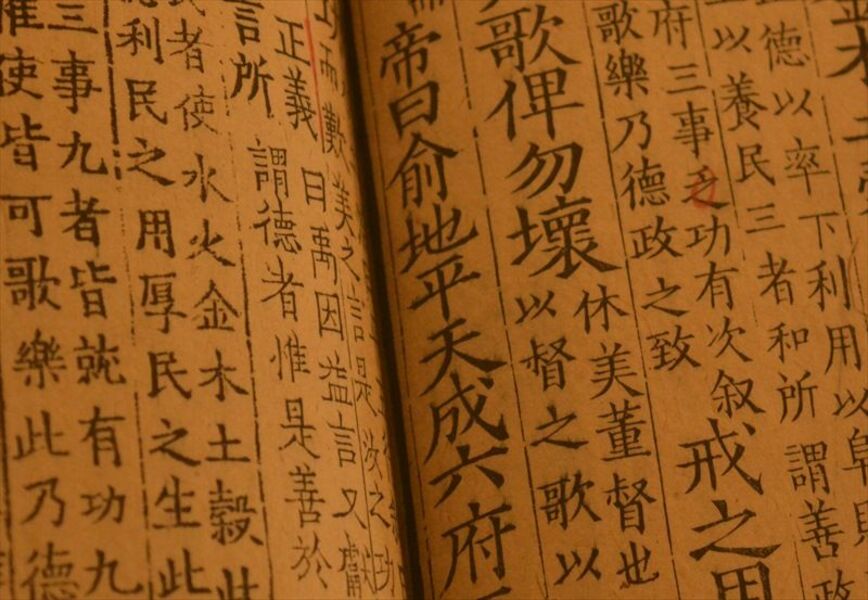 木
德以率下利用以阜財
以養民三者和所謂善政
府三事之功有次叙戒之用
歌樂乃德政之致
歌俾勿壞休美董督也
以督之歌以
帝曰俞地平天成六府
而歎美之言是汝之功
正義曰禹因益言又
言所謂德者惟是善於
民者使水火金木土穀此
利民之用厚民之生此
三事九者皆就有功九
惟使皆可歌樂此乃德